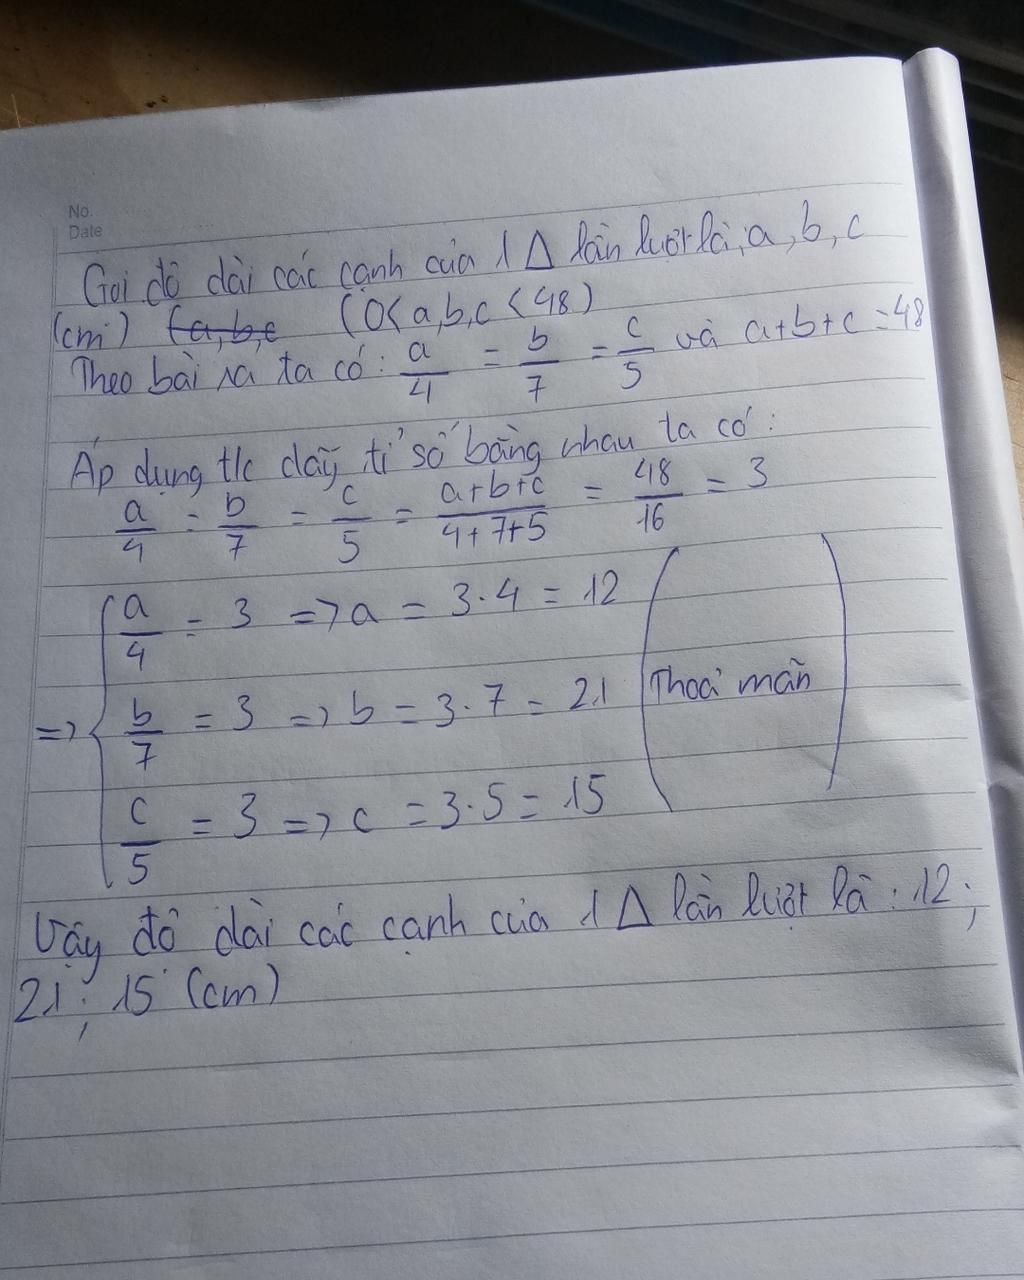 No.
Date
Gọi độ dài các cạnh của 1 Δ lần lượt là, a, b, c
(cm) (a, b, c (0 < a, b, c < 48)
Theo bài ra ta có: a/4 = b/7 = c/5 và a+b+c = 48
Áp dụng t/c dãy tỉ số bằng nhau ta có:
a/4 = b/7 = c/5 = a+b+c/4+7+5 = 48/16 = 3
=> { a/4 = 3 => a = 3.4 = 12
b/7 = 3 => b = 3.7 = 21 (Thoả mãn)
c/5 = 3 => c = 3.5 = 15
Vậy độ dài các cạnh của 1 Δ lần lượt là: 12;
21; 15 (cm)